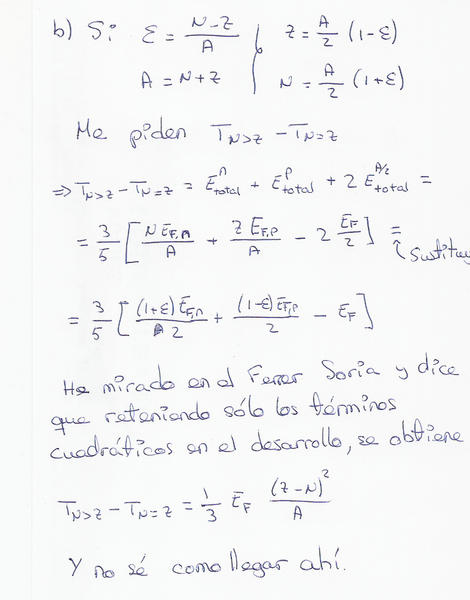 b) Si ε = (N-Z)/A } Z = A/2 (1-ε)
A = N+Z } N = A/2 (1+ε)
Me piden T_{N>Z} - T_{N=Z}
⇒ T_{N>Z} - T_{N=Z} = E^n_{total} + E^p_{total} + 2 E^{A/2}_{total} =
= 3/5 [ N E_{F,n}/A + Z E_{F,p}/A - 2 E_F/2 ] =
↑ Sustituy
= 3/5 [ (1+ε)E_{F,n}/2 + (1-ε)E_{F,p}/2 - E_F ]
He mirado en el Ferrer Soria y dice
que reteniendo sólo los términos
cuadráticos en el desarrollo, se obtiene
T_{N>Z} - T_{N=Z} = 1/3 E_F (Z-N)²/A
Y no sé como llegar ahí.